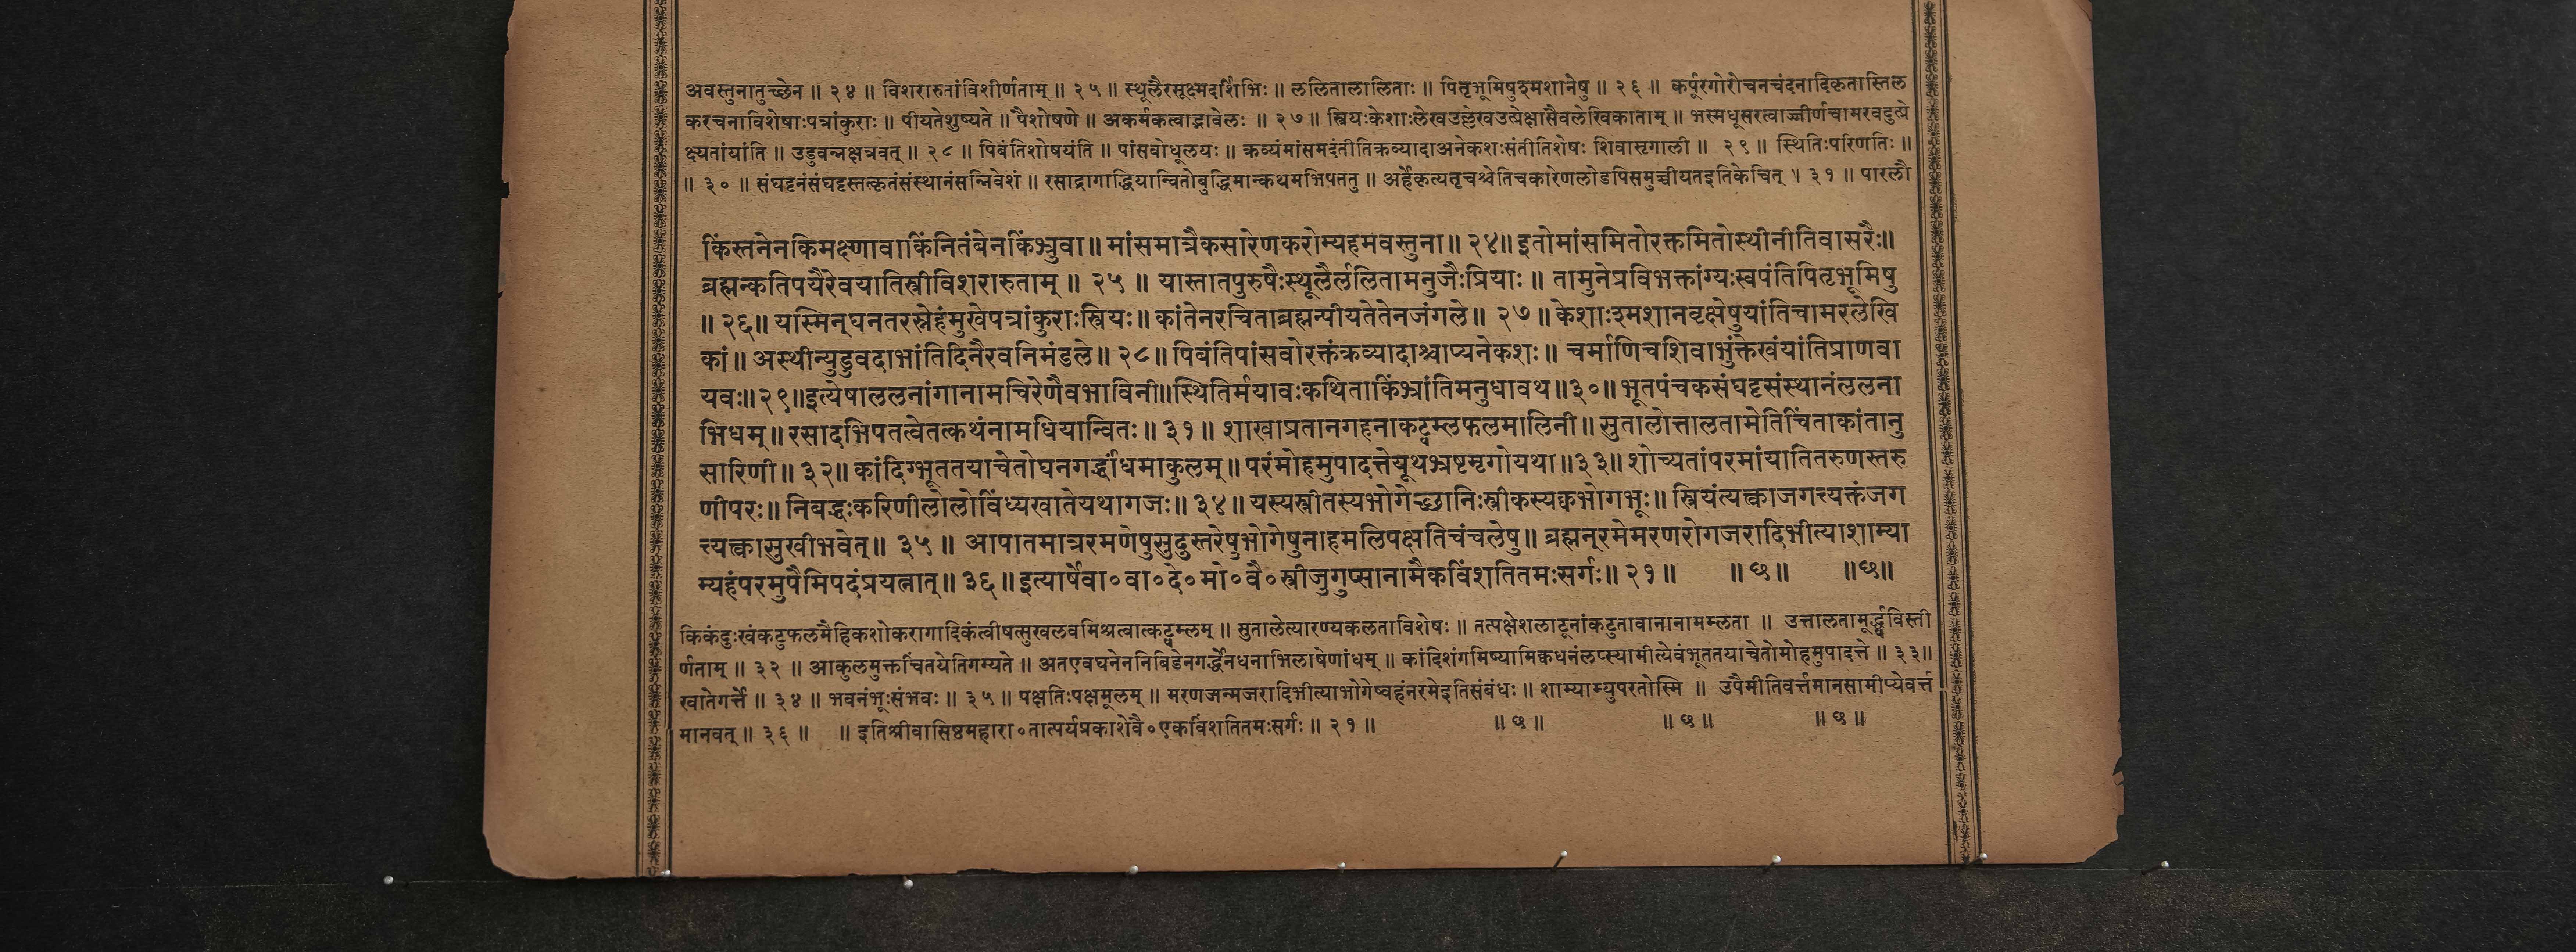 अवस्तुनातुच्छेन ॥ २४ ॥ विशरारुतांविशीर्णताम् ॥ २५ ॥ स्थूलैरसूक्ष्मदर्शिभिः ॥ ललितालालिताः ॥ पितृभूमिषुश्मशानेषु ॥ २६ ॥ कर्पूरगोरोचनचंदनादिकृतास्तिल
करचनाविशेषाःपत्रांकुराः ॥ पीयतेशुष्यते ॥ पैशोषणे ॥ अकर्मकत्वाद्भावेलः ॥ २७ ॥ स्त्रियःकेशाःलेखउल्लेखउत्प्रेक्षासैवलेखिकाताम् ॥ भस्मधूसरत्वाज्जीर्णचामरवदुत्प्रे
क्ष्यतांयांति ॥ उडुवन्नक्षत्रवत् ॥ २८ ॥ पिबंतिशोषयंति ॥ पांसवोधूलयः ॥ क्रव्यंमांसमदंतीतिक्रव्यादाअनेकशःसंतीतिशेषः शिवासृगाली ॥ २९ ॥ स्थितिःपरिणतिः ॥
॥ ३० ॥ संघट्टनंसंघट्टस्तत्कृतंसंस्थानंसन्निवेशं ॥ रसाद्रागाद्धियान्वितोबुद्धिमान्कथमभिपततु ॥ अर्हेकृत्यतृचश्चेतिचकारेणलोडपिसमुच्चीयतइतिकेचित् । ३१ ॥ पारलौ
किंस्तनेनकिमक्ष्णावाकिंनितंबेनकिंभ्रुवा ॥ मांसमात्रैकसारेणकरोम्यहमवस्तुना ॥ २४ ॥ इतोमांसमितोरक्तमितोस्थीनीतिवासरैः ॥
ब्रह्मन्कतिपयैरेवयातिस्त्रीविशरारुताम् ॥ २५ ॥ यास्तातपुरुषैःस्थूलैर्ललितामनुजैःप्रियाः ॥ तामुनेप्रविभक्तांग्यःस्वपंतिपितृभूमिषु
॥ २६ ॥ यस्मिन्घनतरस्नेहंमुखेपत्रांकुराःस्त्रियः ॥ कांतेनरचिताब्रह्मन्पीयतेतेनजंगले ॥ २७ ॥ केशाःश्मशानवृक्षेषुयांतिचामरलेखि
कां ॥ अस्थीन्युडुवदाभांतिदिनैरवनिमंडले ॥ २८ ॥ पिबंतिपांसवोरक्तंक्रव्यादाश्चाप्यनेकशः ॥ चर्माणिचशिवाभुंक्तेखंयांतिप्राणवा
यवः ॥ २९ ॥ इत्येषाललनांगानामचिरेणैवभाविनी ॥ स्थितिर्मयावःकथिताकिंभ्रांतिमनुधावथ ॥ ३० ॥ भूतपंचकसंघट्टसंस्थानंललना
भिधम् ॥ रसादभिपतत्वेतत्कथंनामधियान्वितः ॥ ३१ ॥ शाखाप्रतानगहनाकट्वम्लफलमालिनी ॥ सुतालोत्तालतामेतिचिंताकांतानु
सारिणी ॥ ३२ ॥ कांदिग्भूततयाचेतोघनगर्द्धांधमाकुलम् ॥ परंमोहमुपादत्तेयूथभ्रष्टमृगोयथा ॥ ३३ ॥ शोच्यतांपरमांयातितरुणस्तरु
णीपरः ॥ निबद्धःकरिणीलोलोविंध्यखातेयथागजः ॥ ३४ ॥ यस्यस्त्रीतस्यभोगेच्छानिःस्त्रीकस्यक्वभोगभूः ॥ स्त्रियंत्यक्त्वाजगत्त्यक्तंजग
त्त्यक्त्वासुखीभवेत् ॥ ३५ ॥ आपातमात्ररमणेषुसुदुस्तरेषुभोगेषुनाहमलिपक्षतिचंचलेषु ॥ ब्रह्मन्रमेमरणरोगजरादिभीत्याशाम्या
म्यहंपरमुपैमिपदंप्रयत्नात् ॥ ३६ ॥ इत्यार्षेवा॰वा॰दे॰मो॰वै॰स्त्रीजुगुप्सानामैकविंशतितमःसर्गः ॥ २१ ॥ ॥ छ ॥ ॥ छ ॥
किकंदुःखंकटुफलमैहिकशोकरागादिकंत्वीषत्सुखलवमिश्रत्वात्कट्वम्लम् ॥ सुतालेत्यारण्यकलताविशेषः ॥ तत्पक्षेशलाटूनांकटुतावानानामम्लता ॥ उत्तालतामूर्द्ध्वविस्ती
र्णताम् ॥ ३२ ॥ आकुलमुक्तचिंतयेतिगम्यते ॥ अतएवघनेननिबिडेनगर्द्धेनधनाभिलाषेणांधम् ॥ कांदिशंगमिष्यामिक्वधनंलप्स्यामीत्येवंभूततयाचेतोमोहमुपादत्ते ॥ ३३ ॥
खातेगर्त्ते ॥ ३४ ॥ भवनंभूःसंभवः ॥ ३५ ॥ पक्षतिःपक्षमूलम् ॥ मरणजन्मजरादिभीत्याभोगेष्वहंनरमेइतिसंबंधः ॥ शाम्याम्युपरतोस्मि ॥ उपैमीतिवर्त्तमानसामीप्येवर्त्त
मानवत् ॥ ३६ ॥ ॥ इतिश्रीवासिष्ठमहारा॰तात्पर्यप्रकाशेवै॰एकविंशतितमःसर्गः ॥ २१ ॥ ॥ छ ॥ ॥ छ ॥ ॥ छ ॥